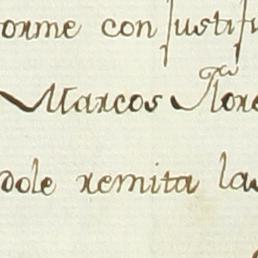 orme con justifi
Marcos Flore
dole remita las